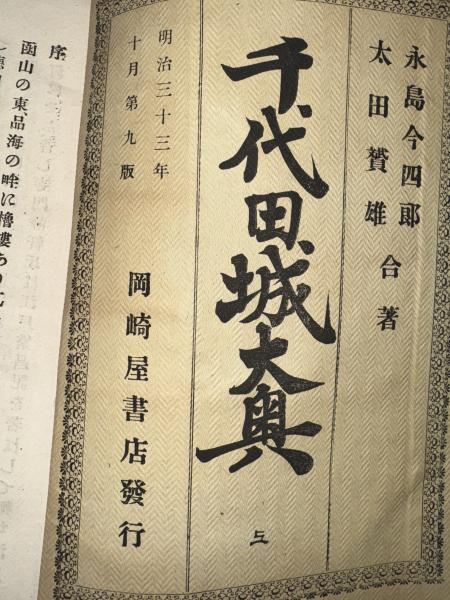 永島今四郎
太田贇雄
合著
千代田城大奥
明治三十三年
十月第九版
岡崎屋書店發行
序
函山の東品海の畔に櫓樓あり